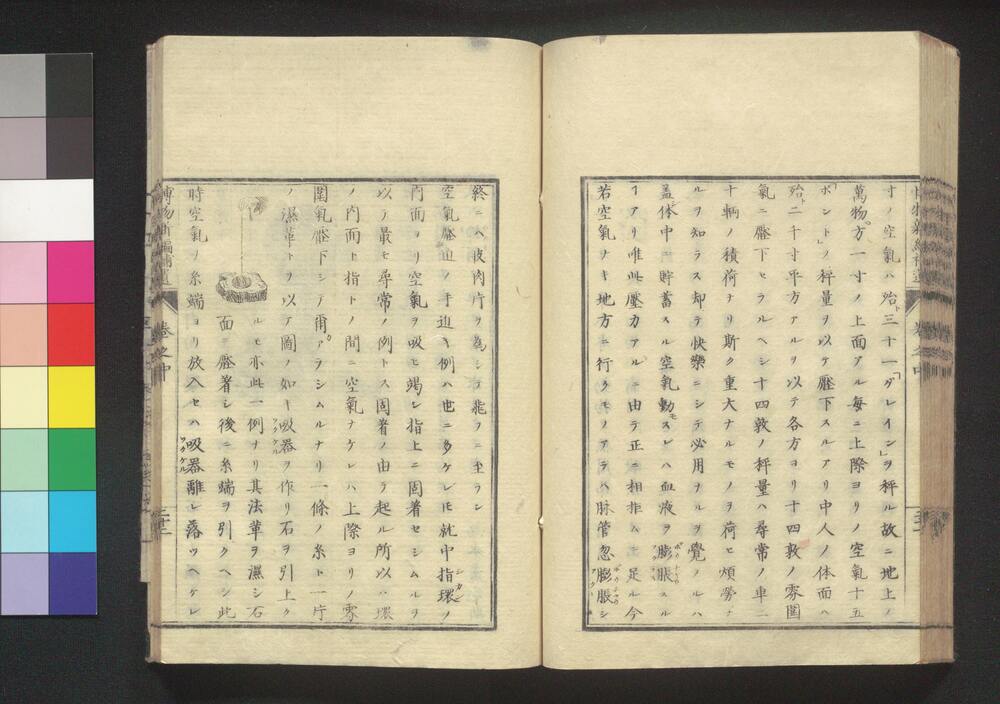 寸ノ空氣ハ殆ト三十一「ゲレイン」ヲ秤ル故ニ地上ノ
萬物方一寸ノ上面アル每ニ上際ヨリノ空氣十五
「ポント」ノ秤量ヲ以ケ壓下スルアリ中人ノ体面ハ
殆ト二千寸平方アルヲ以テ各方ヨリ十四敦ノ雰圍
氣ニ壓下セラルヘシ十四敦ノ秤量ハ尋常ノ車二
十輌ノ積荷ナリ斯ク重大ナルモノヲ荷ヒ煩勞ナ
ルヲ知ラス却テ快樂ニシテ必用ナルヲ覺フルハ
蓋体中ニ貯蓄スル空氣動モスレハ血液ヲ膨脹スル
アリ唯此壓力アルニ由テ正ニ相拒ムニ足ル今
若空氣ナキ地方ニ行クモノアラハ脉管忽膨脹シ
終ニハ皮肉片ヲ為シテ飛フニ至ラン
空氣壓迫ノ手近キ例ハ他ニ多ケレ圧就中指環ノ
内面ヨリ空氣ヲ吸ヒ竭シ指上ニ固著セシムルヲ
以テ最モ尋常ノ例トス固着ノ由テ起ル所以ハ環
ノ内面ト指トノ間ニ空氣ナケレハ上際ヨリノ雰
圍氣壓下シテ爾アラシムルナリ一條ノ糸ト一片
ノ濕革トヲ以ア圖ノ如キ吸器ヲ作リ石ヲ引上ク
ルモ亦此一例ナリ其法革ヲ濕シ石
面ニ壓着シ後ニ糸端ヲ引クヘシ此
時空氣ヲ糸端ヨリ放入セハ吸器離レ落ツヘケレ
博物新編補遺
卷之中